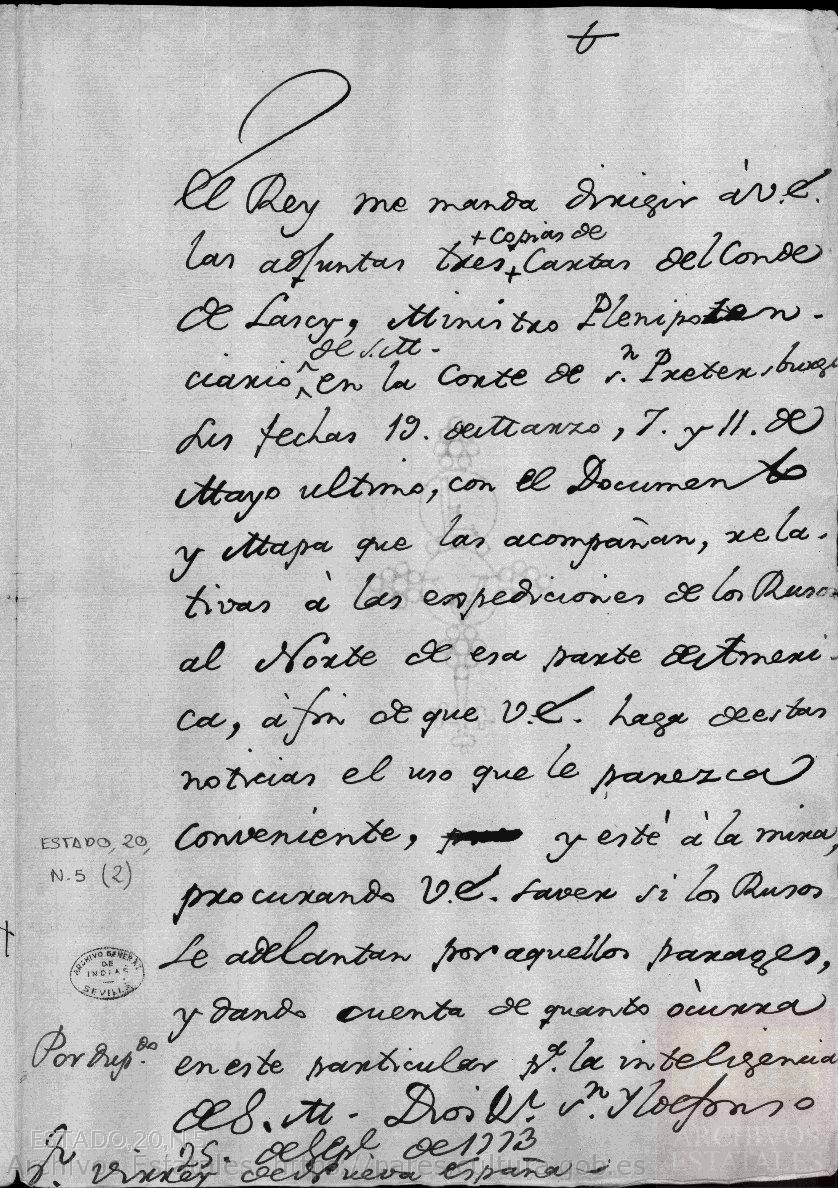 El Rey me manda dirigir à V.E.
las adjuntas tres + Cartas del Conde
+ copias de
de Lascy, Ministro Plenipoten-
ciario, en la Corte de S.n Petersburgo
de S.M.
sus fechas 19. de Marzo, 7. y 11. de
Mayo ultimo, con el Documento
y Mapa que las acompañan, rela-
tivas à las expediciones de los Rusos
al Norte de esa parte de Ameri-
ca, à fin de que V.E. haga de estas
noticias el uso que le parezca
conveniente, y esté à la mira,
procurando V.E. saver si los Rusos
se adelantan por aquellos parages,
y dando cuenta de quanto ocurra
en este particular p.a la inteligencia
de S.M. Dios g.e S.n Yldefonso
25. de Sept.e de 1773
S.r Virrey de Nueva España
Por dup.do
ESTADO, 20,
N.5 (2)
ARCHIVO GENERAL
DE
INDIAS
SEVILLA
ESTADO,20,N.5
ARCHIVOS
ESTATALES